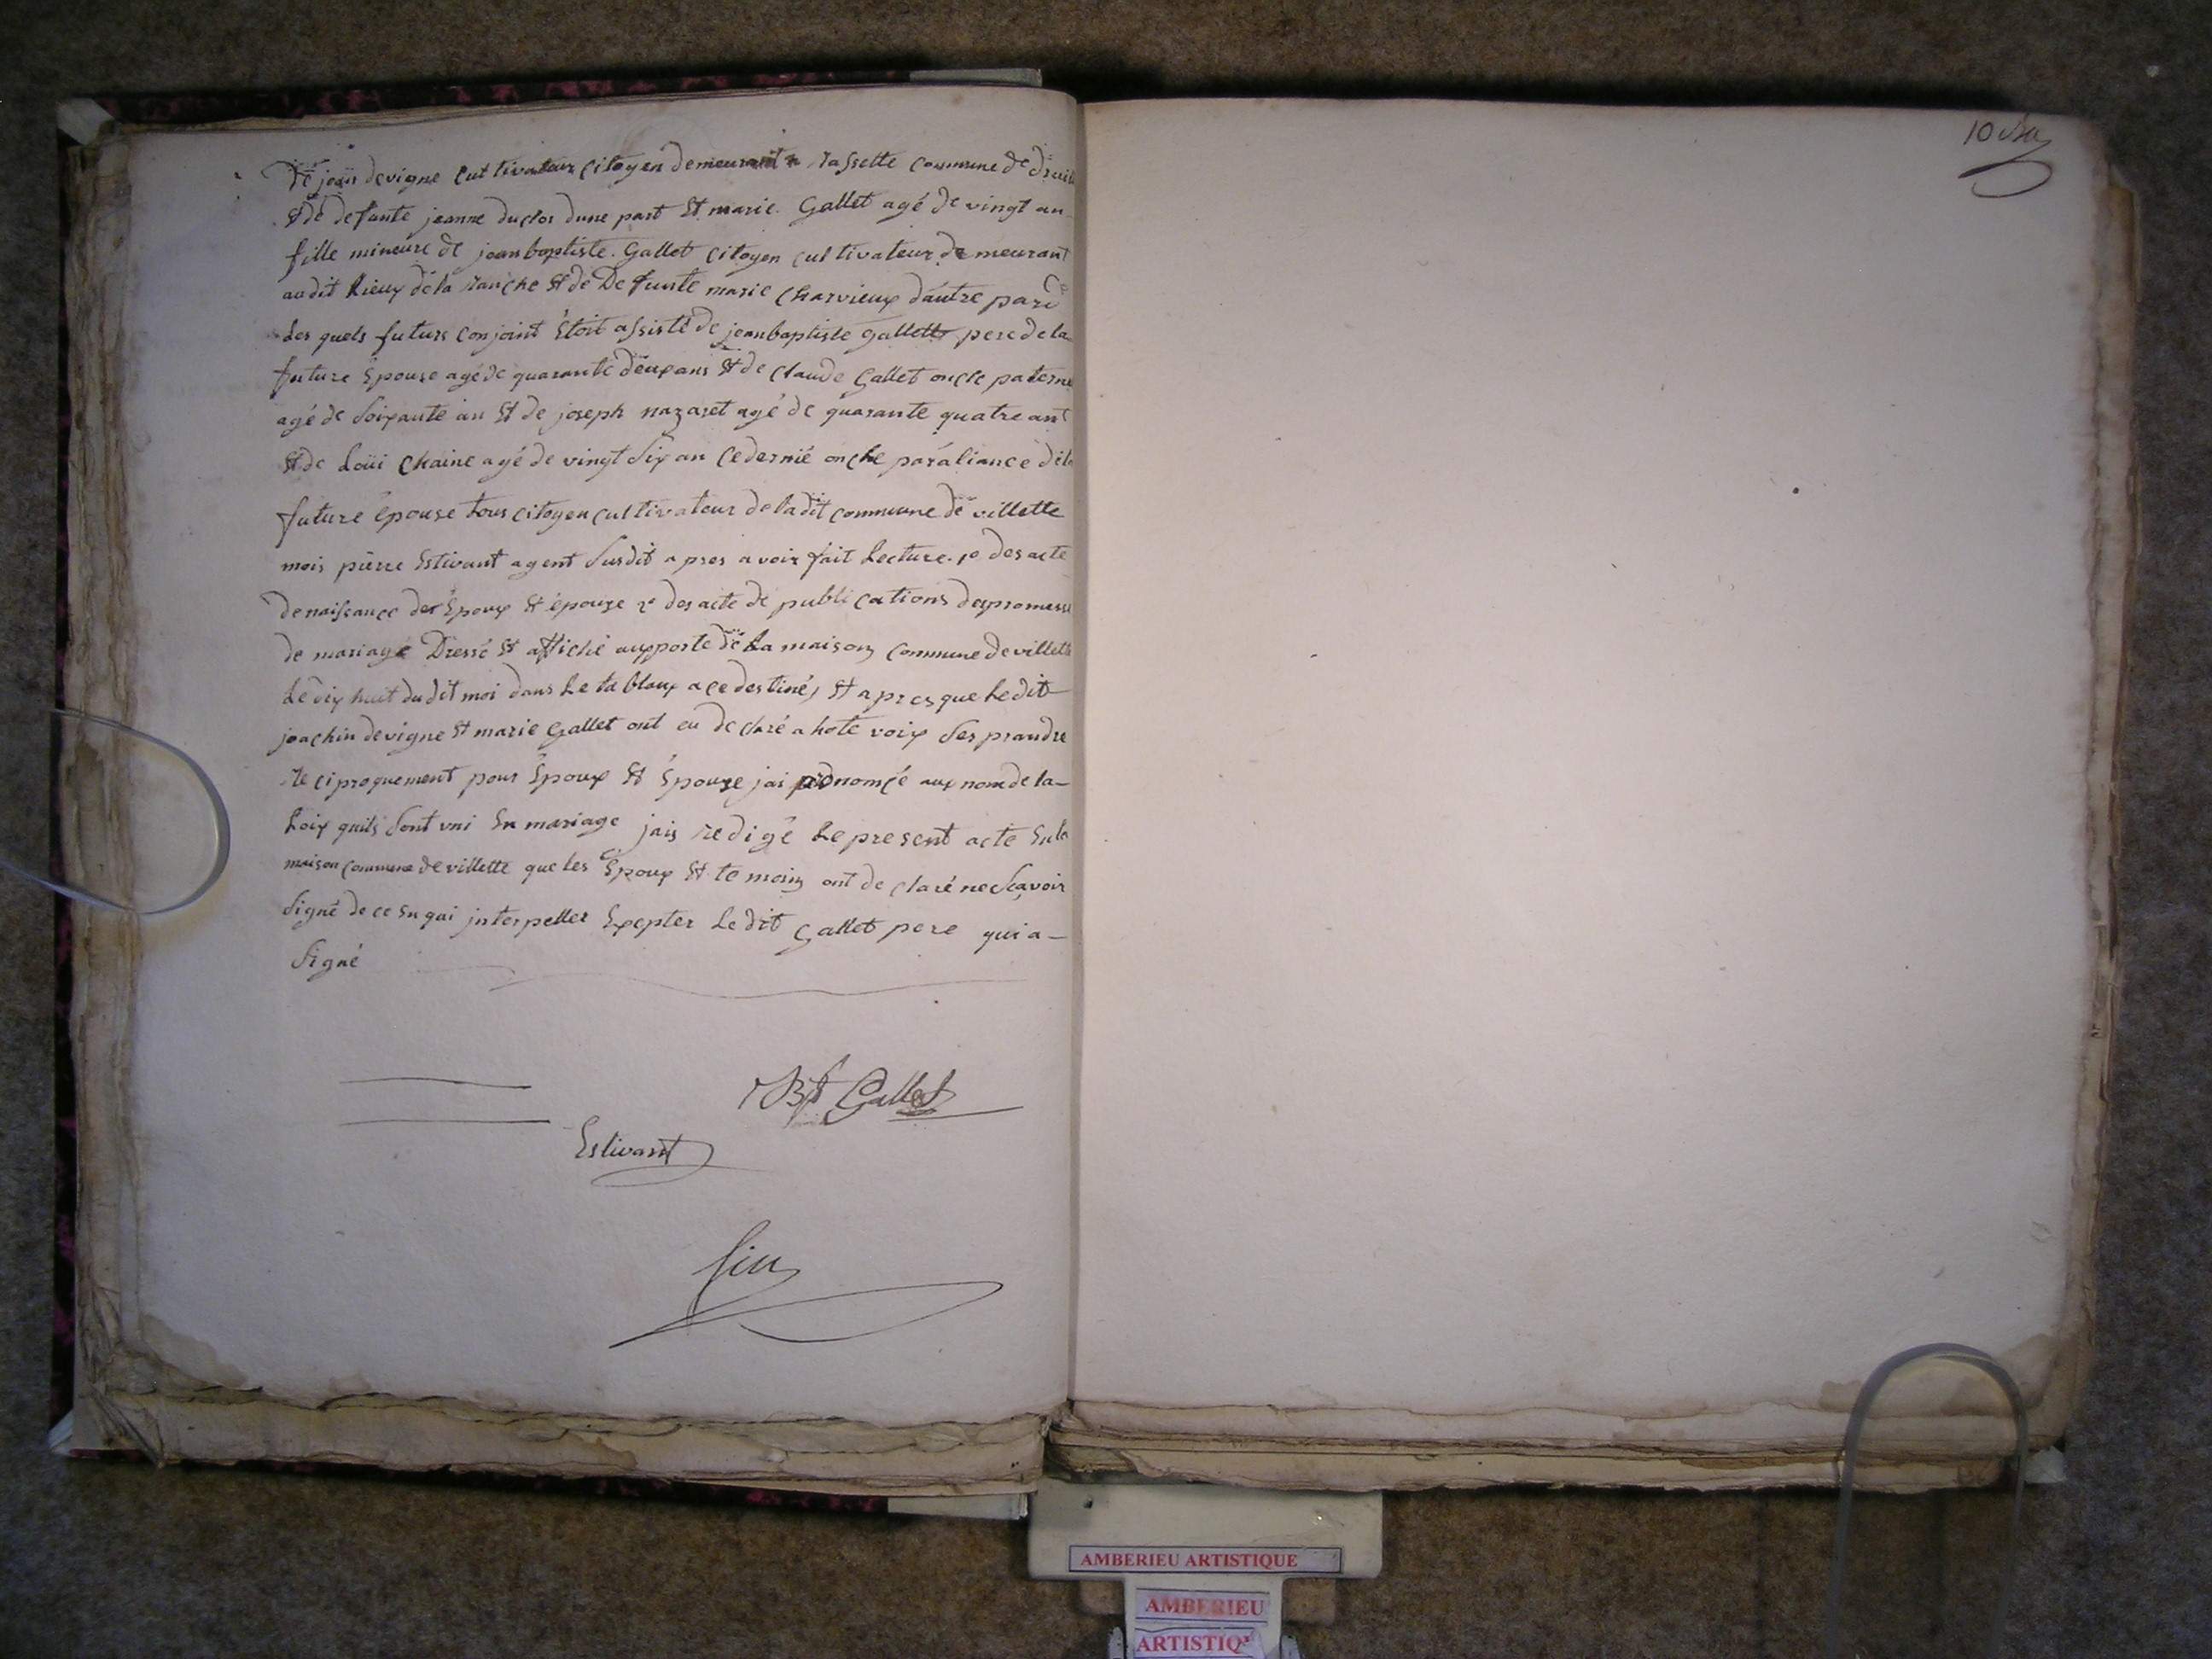 de jean devigne cultivateur citoyen demeurant a rassette commune de
St de defunte jeanne duclos dune part St marie. Gallet agé de vingt an
fille mineure de jean baptiste. Gallet citoyen cultivateur demeurant
audit Rieux déla ranche St de Defunte marie charvieux dautre part
Les quels future conjoint Étoit assisté de jean baptiste gallett pere de la
future Epouse agé de quarante deux ans St de claude Gallet oncle paterne
agé de soixante an St de joseph nazaret agé de quarante quatre ant
St de Loüi chaine agé de vingt six an ce dernié oncle par aliance de la
future épouse tous citoyen cultivateur de la dit commune de villette
mois pierre Estivant agent susdit apres avoir fait Lecture. 1º des acte
de naissance des Époux St épouze 2º des acte de publications des promesse
de mariage Dressé St affiché aux porte de La maison commune de villette
Le dix huit du dit moi dans Le tablaux a ce destiné, St apres que Le dit
joachin devigne St marie Gallet ont eu declaré a hote voix ses prandre
reciproquement pour Époux St Épouze jai prononcé aux nom de la
Loix quils sont uni En mariage jais redigé Le present acte En la
maison commune de villette que les Époux St temoin ont declaré ne sçavoir
signé de ce Enqui interpeller Excepter Le dit Gallet pere qui a
signé
JBt Gallet
Estivant
fin
10
AMBERIEU ARTISTIQUE
AMBERIEU
ARTISTIQ